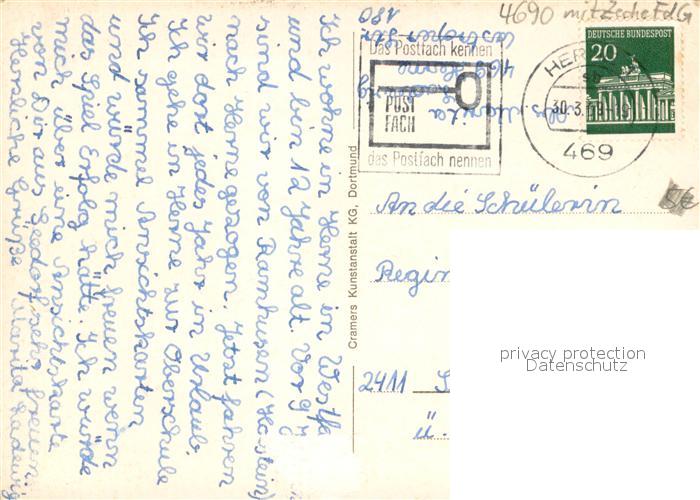 4690 mit Zeche FdG
Das Postfach kennen
POST
FACH
das Postfach nennen
HER
30.3.
469
DEUTSCHE BUNDESPOST
20
An die Schülerin
Regin
2411
ü.
privacy protection
Datenschutz
Cramers Kunstanstalt KG, Dortmund
Ich wohne in Herne in Westfa
und bin 12 Jahre alt. Vor 9 J
sind wir von Ramhusen (Holstein)
nach Herne gezogen. Jetzt fahren
wir dort jedes Jahr in Urlaub.
Ich gehe in Herne zur Oberschule
Ich sammel Ansichtskarten
und würde mich freuen wenn
das Spiel Erfolg hätte. Ich würde
mich über eine Ansichtskarte
von Dir aus Seedorf sehr freuen.
Herzliche Grüße Marita
Marita
469 Herne